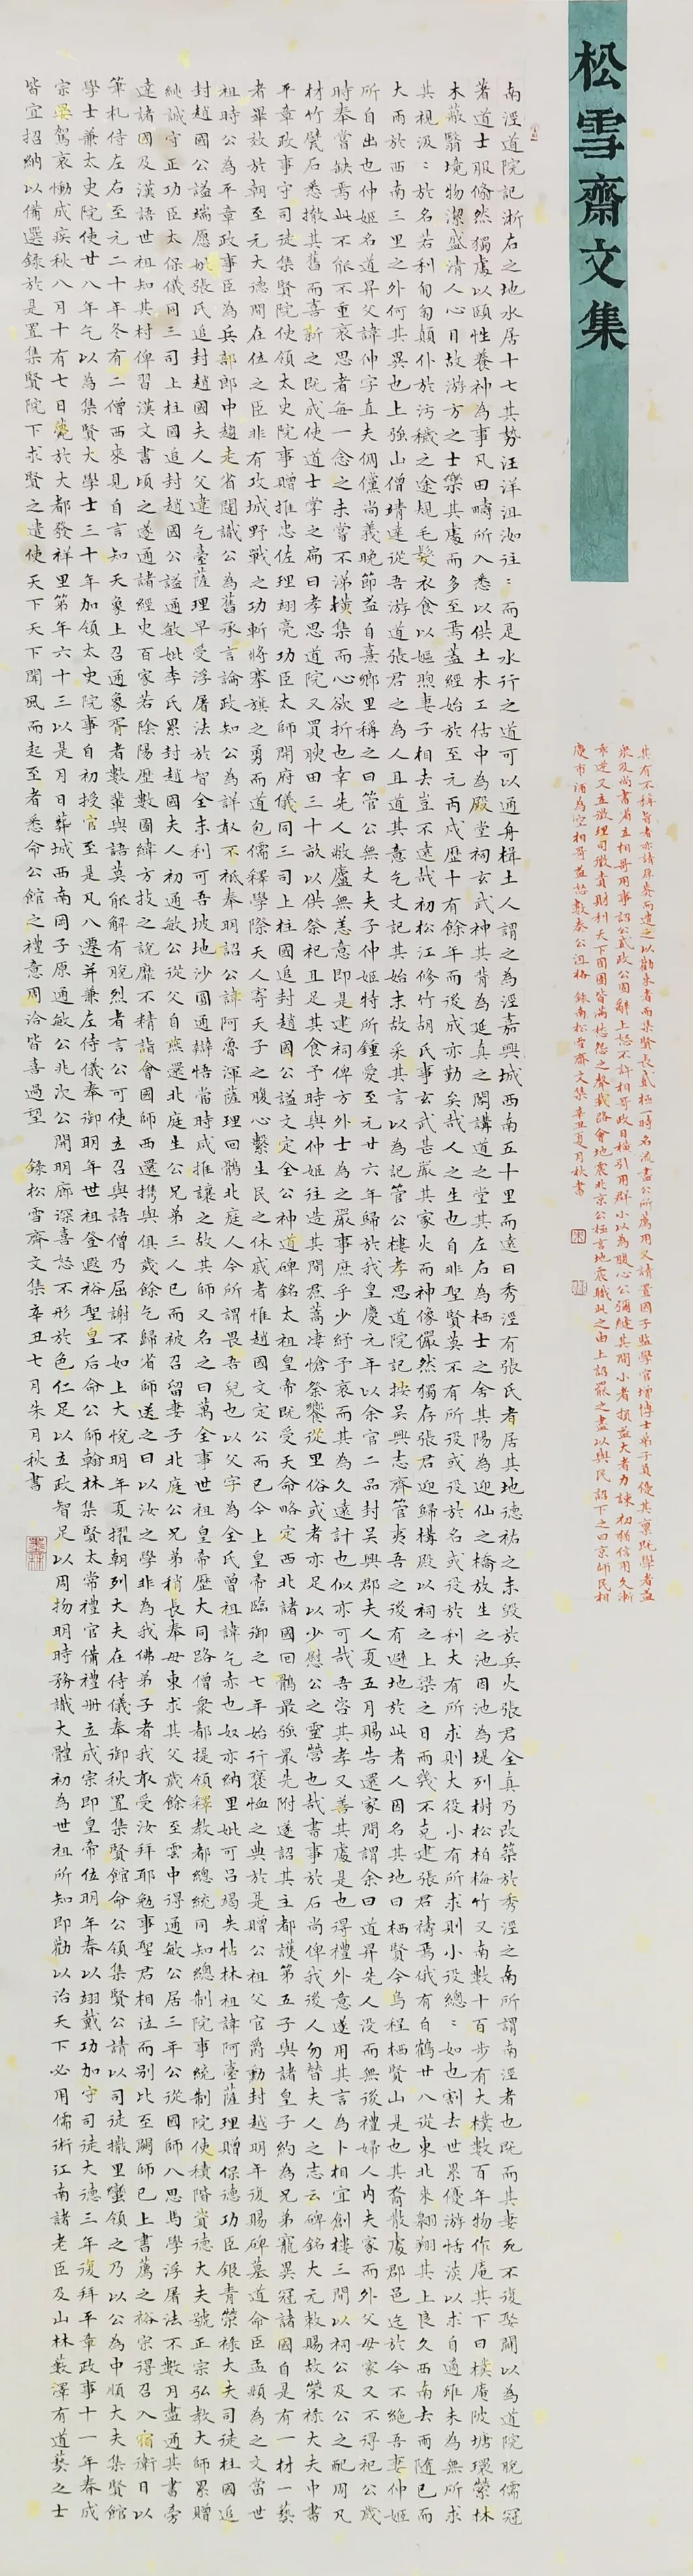 松雪齋文集
南涇道院記浙右之地水居十七其勢汪洋沮洳往〻而是水行之道可以通舟楫土人謂之為涇嘉興城西南五十里而遠曰秀涇有張氏者居其地德祐之末毀於兵火張君全真乃改築於秀涇之南所謂南涇者也既而其妻死不復娶闢以為道院脫儒冠
著道士服翛然獨處以頤性養神為事凡田疇所入悉以供土木工估中為殿堂祠玄武神其背為延真之閣講道之堂其左右為栖士之舍其陽為迎仙之橋放生之池因池為堤列樹松柏梅竹又南數十百步有大樸數百年物作庵其下曰樸庵陂塘環縈林
木蔽翳境物潔盛清人心目故游方之士樂其處而多至焉蓋經始於至元丙戌歷十有餘年而後成亦勤矣哉人之生也自非聖賢莫不有所役或役於名或役於利大有所求則大役小有所求則小役總〻如也割去世累優游恬淡以求自適雖未為無所求
其視汲〻於名若利匍匐顛仆於污穢之途規毛髮衣食以嫗煦妻子相去豈不遠哉初松江修竹胡氏事玄武甚嚴其家火而神像儼然獨存張君迎歸構殿以祠之上梁之日雨幾不克建張君禱焉俄有白鶴廿八從東北來翱翔其上良久西南去雨隨已而
大雨於西南三里之外何其異也上強山僧靖達從吾游道張君之為人且道其意乞文記其始末故采其言以為記管公樓孝思道院記按吳興志齊管夷吾之後有避地於此者人因名其地曰栖賢今烏程栖賢山是也其裔散處郡邑迄於今不絕吾妻仲姬
所自出也仲姬名道昇父諱伸字直夫倜儻尚義晚節益自熹鄉里稱之曰管公無丈夫子仲姬特所鍾愛至元廿六年歸於我皇慶元年以余官二品封吳興郡夫人夏五月賜告還家間謂余曰道昇先人沒而無後禮婦人內夫家而外父母家又不得祀公歲
時奉嘗缺焉此不能不重哀思者每一念之未嘗不涕橫集而心欲折也幸先人敝廬無恙意即是建祠俾方外士為之嚴事庶乎少紓予哀而其為久遠計也似亦可哉吾咨其孝又善其處是也得禮外意遂用其言為卜相宜創樓三間以祠公及公之配周凡
材竹甓石悉撤其舊而喜新之既成使道士掌之扁曰孝思道院又買腴田三十畝以供祭祀且足其食予時與仲姬往造其間焄蒿悽愴祭饗從里俗或者亦足以少慰公之靈營也哉書事於石尚俾我後人勿替夫人之志云碑銘大元敕賜故榮祿大夫中書
平章政事守司徒集賢院使領太史院事贈推忠佐理翊亮功臣太師開府儀同三司上柱國追封趙國公謚文定全公神道碑銘太祖皇帝既受天命略定西北諸國回鶻最強最先附遂詔其主都護第五子與諸皇子約為兄弟寵異冠諸國自是有一材一藝
者畢效於朝至元大德間在位之臣非有攻城野戰之功斬將搴旗之勇而道包儒釋學際天人寄天子之腹心繫生民之休戚者惟趙國文定公而已今上皇帝臨御之七年始行褒恤之典於是贈公祖父官爵勳封越明年復賜碑墓道命臣孟頫為之文當世
祖時公為平章政事臣為兵部郎中趨走省闥識公為舊承言論政知公為詳敢不祗奉明詔公諱阿魯渾薩理回鶻北庭人今所謂畏吾兒也以父字為全氏曾祖諱乞赤也奴亦納里妣可呂竭失帖林祖諱阿臺薩理贈保德功臣銀青榮祿大夫司徒柱國追
封趙國公謚瑞愿妣張氏追封趙國夫人父諱乞臺薩理早受浮屠法於智全末利可吾坡地沙圓通辯悟當時咸推讓之故其師又名之曰萬全事世祖皇帝歷大同路僧眾都提領釋教都總統同知總制院事統制院使積階資德大夫號正宗弘教大師累贈
純誠守正功臣太保儀同三司上柱國追封趙國公謚通敏妣李氏累封趙國夫人初通敏公從父自燕還北庭生公兄弟三人已而被召留妻子北庭公兄弟稍長奉母東求其父歲餘至雲中得通敏公居三年公從國師八思馬學浮屠法不數月盡通其書旁
達諸國及漢語世祖知其材俾習漢文書頃之遂通諸經史百家若陰陽歷數圖緯方技之說靡不精詣會國師西還攜與俱歲餘乞歸省師送之曰以汝之學非為我佛弟子者我敢受汝拜耶勉事聖君相位而別比至闕師已上書薦之裕宗得召入宿衛日以
筆札侍左右至元二十年冬有二僧西來見自言知天象上召通象胥者數輩與語莫能解有脫烈者言公可使立召與語僧乃屈謝不如上大悅明年夏擢朝列大夫左侍儀奉御秋置集賢館命公領集賢公請以司徒撒里蠻領之乃以公為中順大夫集賢館
學士兼太史院使廿八年乞以為集賢大學士三十年加領太史院事自初授官至是凡八遷并兼左侍儀奉御明年世祖登遐裕聖皇后命公師翰林集賢太常禮官備禮冊立成宗即皇帝位明年春以翊戴功加守司徒大德三年復拜平章政事十一年春成
宗晏駕哀慟成疾秋八月十有七日薨於大都發祥里第年六十三以是月日葬城西南岡子原通敏公兆次公開明廓深喜怒不形於色仁足以立政智足以周物明時務識大體初為世祖所知即勸以治天下必用儒術江南諸老臣及山林藪澤有道藝之士
皆宜招納以備選錄於是置集賢院下求賢之遣使天下天下聞風而起至者悉命公館之禮意周洽皆喜過望 錄松雪齋文集辛丑七月朱月秋書
其有不稱旨者亦請厚賚而遣之以勸來者而集賢長貳極一時名流盡公所薦用又請置國子監學官增博士弟子員優其廩既學者益
眾及尚書省立相哥用事詔公貳政公固辭上怒不許相哥政日橫引用群小以為腹心公彌縫其間小者損益大者力諫初猶信用久漸
乖逆又立徵理司徵責財利天下囹圄皆滿愁怨之聲載路會地震北京公極言地震職此之由上詔罷之盡以與民詔下之日京師民相
慶市酒為空相哥益怒數奏公沮格 錄南松雪齋文集辛丑夏月秋書